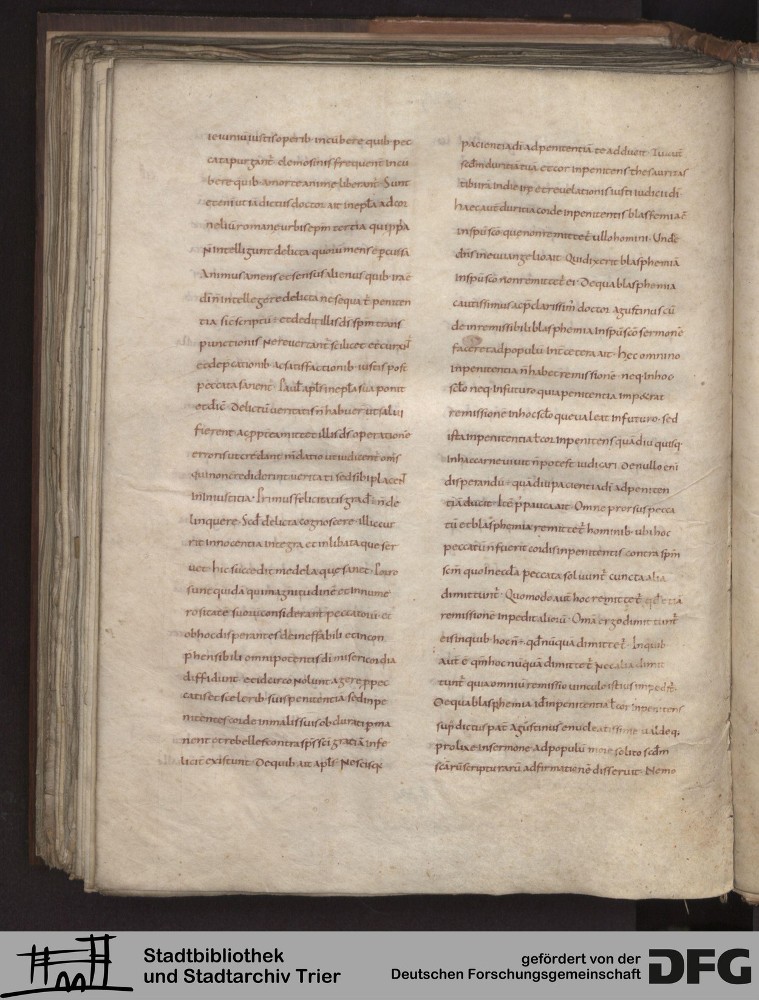 ieiuniũ iustis operib· incũbere quib· pec
cata purgant̄· elemosinis frequent̄ incũ
bere quib· a morte anime liberant̄· Sunt
etenī ut ia dictus doctor ait in ep̄la ad cor
neliũ romane urbis ep̄m tercia qui pp̄a
n̄ intelligunt delicta quoniũ mens ẽ ꝑcussa
Animus amens et sensus alienus quib· irae
dī n̄ intellegere delicta ne sequat̄ peniten
tia sic scriptũ ÷ et dedit illis dī sp̄m trans
punctionis Ne reuertant̄ scilicet et curat̄
et dep̄cationib· ac satisfactionib· iustis post
peccata sanent̄· Paul̄ apl̄s in ep̄la sua ponit
et dic̄· Delictũ ueritatis n̄ habuer̄ ut salui
fierent· ac ppterea mittet illis dī operationē
erroris ut credant m̄datio ut iudicent̄ om̄s
qui non crediderint ueritati sed sibi placent
in iniusticia· Primus felicitatis grad̄ ẽ n̄ de
linquere· Scd̄ delicta cognoscere· Illic cur
rit innocentia integra et inlibata que ser
uet· hic succedit medela que sanet·
sunt quida qui magnitudinē et innume
rositatē suorũ considerant peccatorũ· et
ob hoc disperantes de ineffabili et incon
p̄hensibili omnipotentis dī misericordia
diffidunt· et idcirco nolunt agere p pec
catis et scelerib· suis penitentiā sed inpe
nitentes corde in malis suis obdurati pma
nent et rebelles contra sp̄s s̄ci gratiā infe
licit̄ existunt· De quib· ait apl̄s· Nescis qa
paciencia dī ad penitentiā te adducit· Tu aut̄
sedm̄ duritiā tuā et cor inpenitens thesaurizas
tibi irā in die irę et reuelationis iusti iudicii dī·
haec aut̄ duritia cordis inpenitentis blasfemia ẽ
in sp̄u sc̄o que non remittet̄ ullo homini· Unde
dn̄s in euuangelio ait· Qui dixerit blasphemiā
in sp̄u sc̄o non remittet̄ ei· De qua blasphemia
cautissimus ac p̄clarissim̄ doctor agustinus cũ
de inremissibili blasphemia in sp̄u sc̄o sermonē
faceret ad populũ int̄ cetera ait· Hec omnino
inpenitentia n̄ habet remissionē· neq· in hoc
sclo neq· in futuro quia penitentia impetrat
remissionē in hoc sclo que ualeat in futuro· sed
ista inpenitentia ł cor inpenitens quādiu quisq·
in hac carne uiuit n̄ potest iudicari· De nullo eni
disperandũ ÷ quādiu paciencia dī ad peniten
tiā ducit· Ite p̄ pauca ait· Omne prorsus pecca
tũ et blasphemia remittet̄ hominib· ubi hoc
peccatũ n̄ fuerit cordis inpenitentis contra sp̄m
sc̄m quo in eccl̄a peccata soluunt̄ cuncta alia
dimittunt̄· Quomodo aut̄ hoc remittet̄ qd̄ etiā
remissionē inpedit aliorũ· Oma ergo dimittunt̄
eis in quib· hoc n̄ ÷ qd̄ nũquā dimittet̄· In quib·
aut̄ ẽ qm̄ hoc nũquā dimittet̄ Nec alia dimit
tunt̄· quia omniũ remissio uinculo istius impedit̄·
De qua blasphemia id ẽ inpenitentia ł cor inpenitens
sup̄dictus pat̄ agustinus enucleatissime ualdeq·
prolixe in sermone ad populũ more solito sedm̄
sc̄arũ scripturarũ adfirmationē disseruit· Nemo
Stadtbibliothek
und Stadtarchiv Trier
gefördert von der
Deutschen Forschungsgemeinschaft
DFG